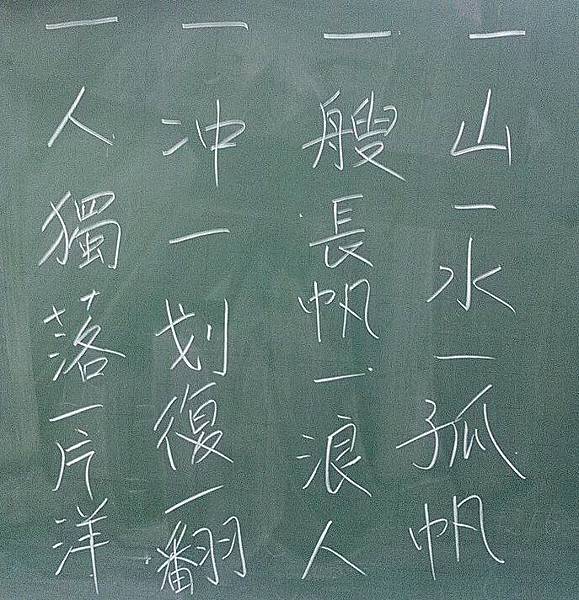 一山一水一孤帆
一艘長帆一浪人
一冲一划復一翻
一人獨落一片洋